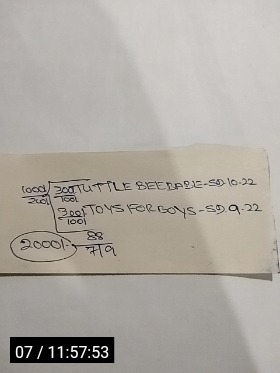 1000/ 300/ TUTTLE BEE BABE-SD.10.22
200/ 100/
300/ TOYS FOR BOYS-SD.9.22
100/
2000/- 88
7/9
07 / 11:57:53